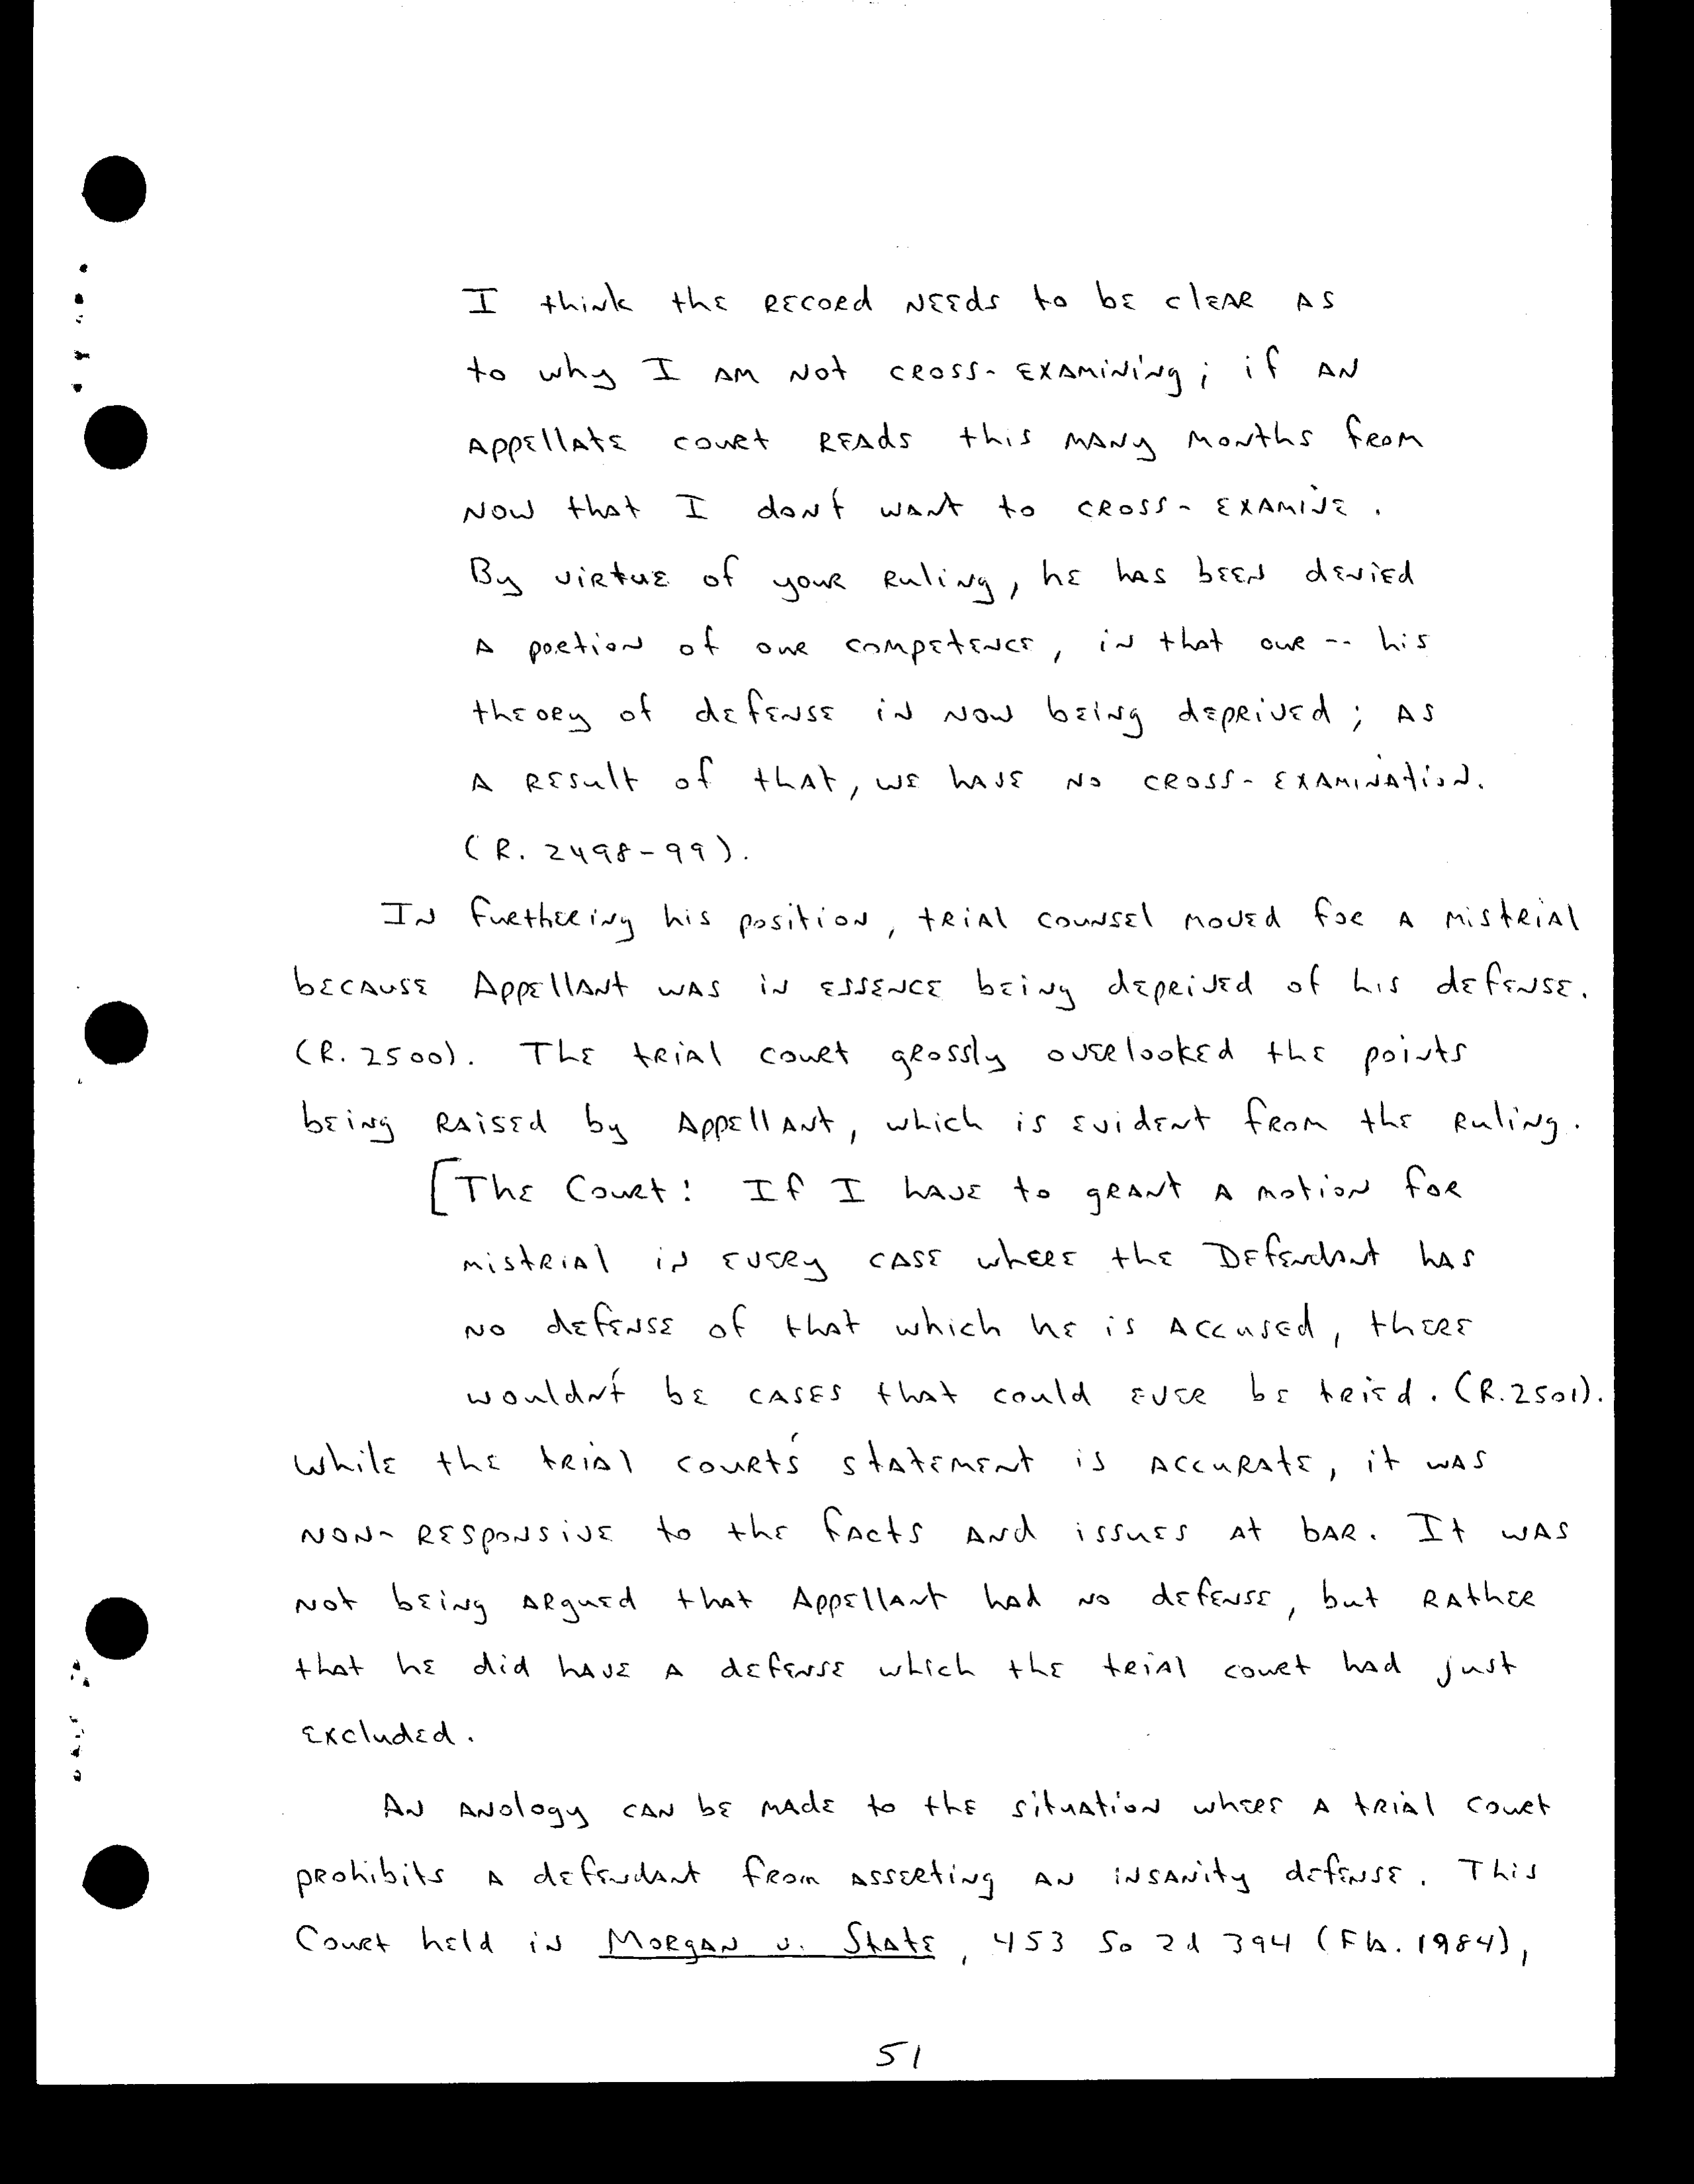 I think the record needs to be clear as
to why I am not cross-examining; if an
appellate court reads this many months from
now that I don't want to cross-examine.
By virtue of your ruling, he has been denied
a portion of our competence, in that our -- his
theory of defense in now being deprived; as
a result of that, we have no cross-examination.
(R. 2498-99).
In furthering his position, trial counsel moved for a mistrial
because Appellant was in essence being deprived of his defense.
(R. 2500). The trial court grossly overlooked the points
being raised by Appellant, which is evident from the ruling.
[The Court: If I have to grant a motion for
mistrial in every case where the Defendant has
no defense of that which he is accused, there
wouldn't be cases that could ever be tried. (R.2501).
While the trial court's statement is accurate, it was
non-responsive to the facts and issues at bar. It was
not being argued that Appellant had no defense, but rather
that he did have a defense which the trial court had just
excluded.
An anology can be made to the situation where a trial court
prohibits a defendant from asserting an insanity defense. This
Court held in Morgan v. State, 453 So 2d 394 (Fla. 1984),
51